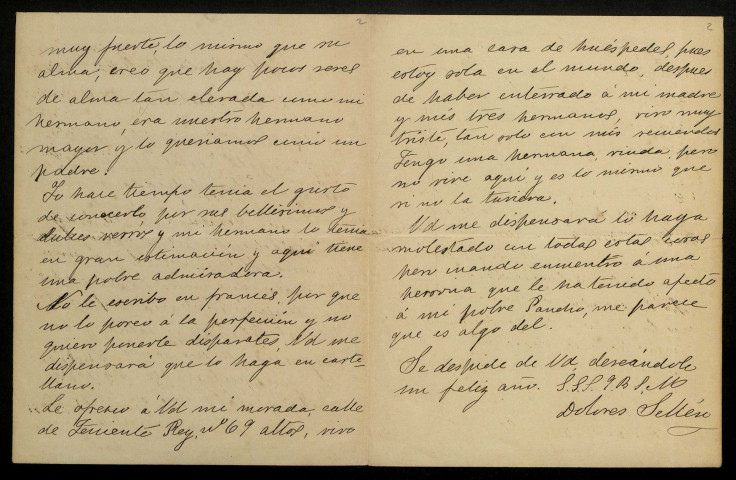 2
muy fuerte, lo mismo que su
alma, creo que hay pocos seres
de alma tan elevada como mi
hermano, era nuestro hermano
mayor y lo queriamos como un
padre.
Yo hace tiempo tenia el gusto
de conocerlo, por sus bellisimos y
dulces versos y mi hermano lo tenia
en gran estimación y aqui tiene
una pobre admiradora.
No le escribo en francés, por que
no lo poseo á la perfeccion y no
quiero ponerle disparates, Vd me
dispensará que lo haga en caste-
llano.
Le ofrezco á Vd mi morada, calle
de Teniente Rey, nº 69 altos, vivo
2
en una casa de huéspedes, pues
estoy sola en el mundo, despues
de haber enterrado á mi madre
y mis tres hermanos, vivo muy
triste, tan solo con mis recuerdos
Tengo una hermana, viuda, pero
no vive aqui y es lo mismo que
si no la tuviera.
Vd me dispensará lo haya
molestado con todas estas cosas
pero cuando encuentro á una
persona que le ha tenido afecto
á mi pobre Pancho, me parece
que es algo del.
Se despide de Vd. deseándole
un feliz ano. S.S.S. q. B. S. M
Dolores Sellén